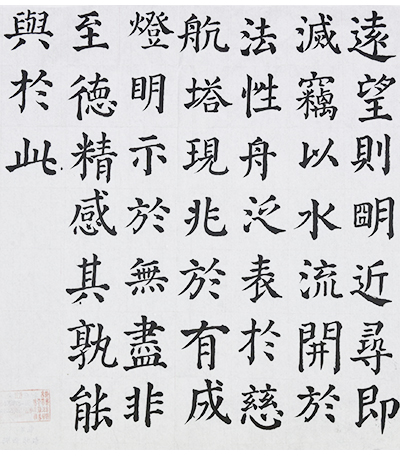 遠望則明近尋即
滅竊以水流開於
法性舟泛表於慈
航塔現兆於有成
燈明示於無盡非
至德精感其孰能
與於此